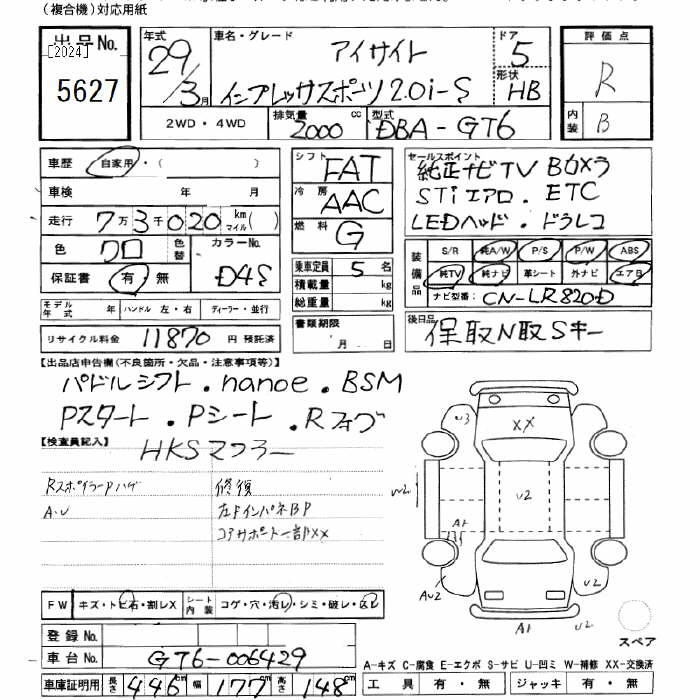 (複合機)対応用紙
出品No.
[2024]
5627
年式
29
3月
車名・グレード
アイサイト
インプレッサスポーツ2.0i-S
ドア
5
形状
HB
評価点
R
内装
B
2WD・4WD
排気量
2000 cc
型式
DBA-GT6
車歴
自家用・( )
車検 年 月
走行 7万3千020 km マイル( )
色
クロ
色替
カラーNo.
D4S
保証書 有・無
モデル年式 年 ハンドル 左・右 ディーラー・並行
リサイクル料金 11870 円 預託済
シフト FAT
冷房 AAC
燃料 G
乗車定員 5 名
積載量 kg
総重量 kg
書類期限
月 日
セールスポイント
純正ナビTV Bカメラ
STiエアロ. ETC
LEDヘッド・ドラレコ
装備品
S/R 純A/W P/S P/W ABS
純TV 純ナビ 革シート 外ナビ エアB
ナビ型番: CN-LR820D
後日品
保取N取Sキー
【出品店申告欄(不良箇所・欠品・注意事項等)】
パドルシフト.nanoe.BSM
Pスタート.Pシート.Rフォグ
HKSマフラー
【検査員記入】
RスポイラーPハゲ
A・U
修復
左FインパネBP
コアサポート一部XX
FW キズ・トビ石・割レX
シート内装 コゲ・穴・汚レ・シミ・破レ・スレ
登録No.
車台No. GT6-006429
車庫証明用 長さ 446cm 幅 177cm 高さ 148cm
U3
XX
U2
U2
A1
AU2
U2
A1
U2
スペア
A-キズ C-腐食 E-エクボ S-サビ U-凹ミ W-補修 XX-交換済
工具 有・無 ジャッキ 有・無